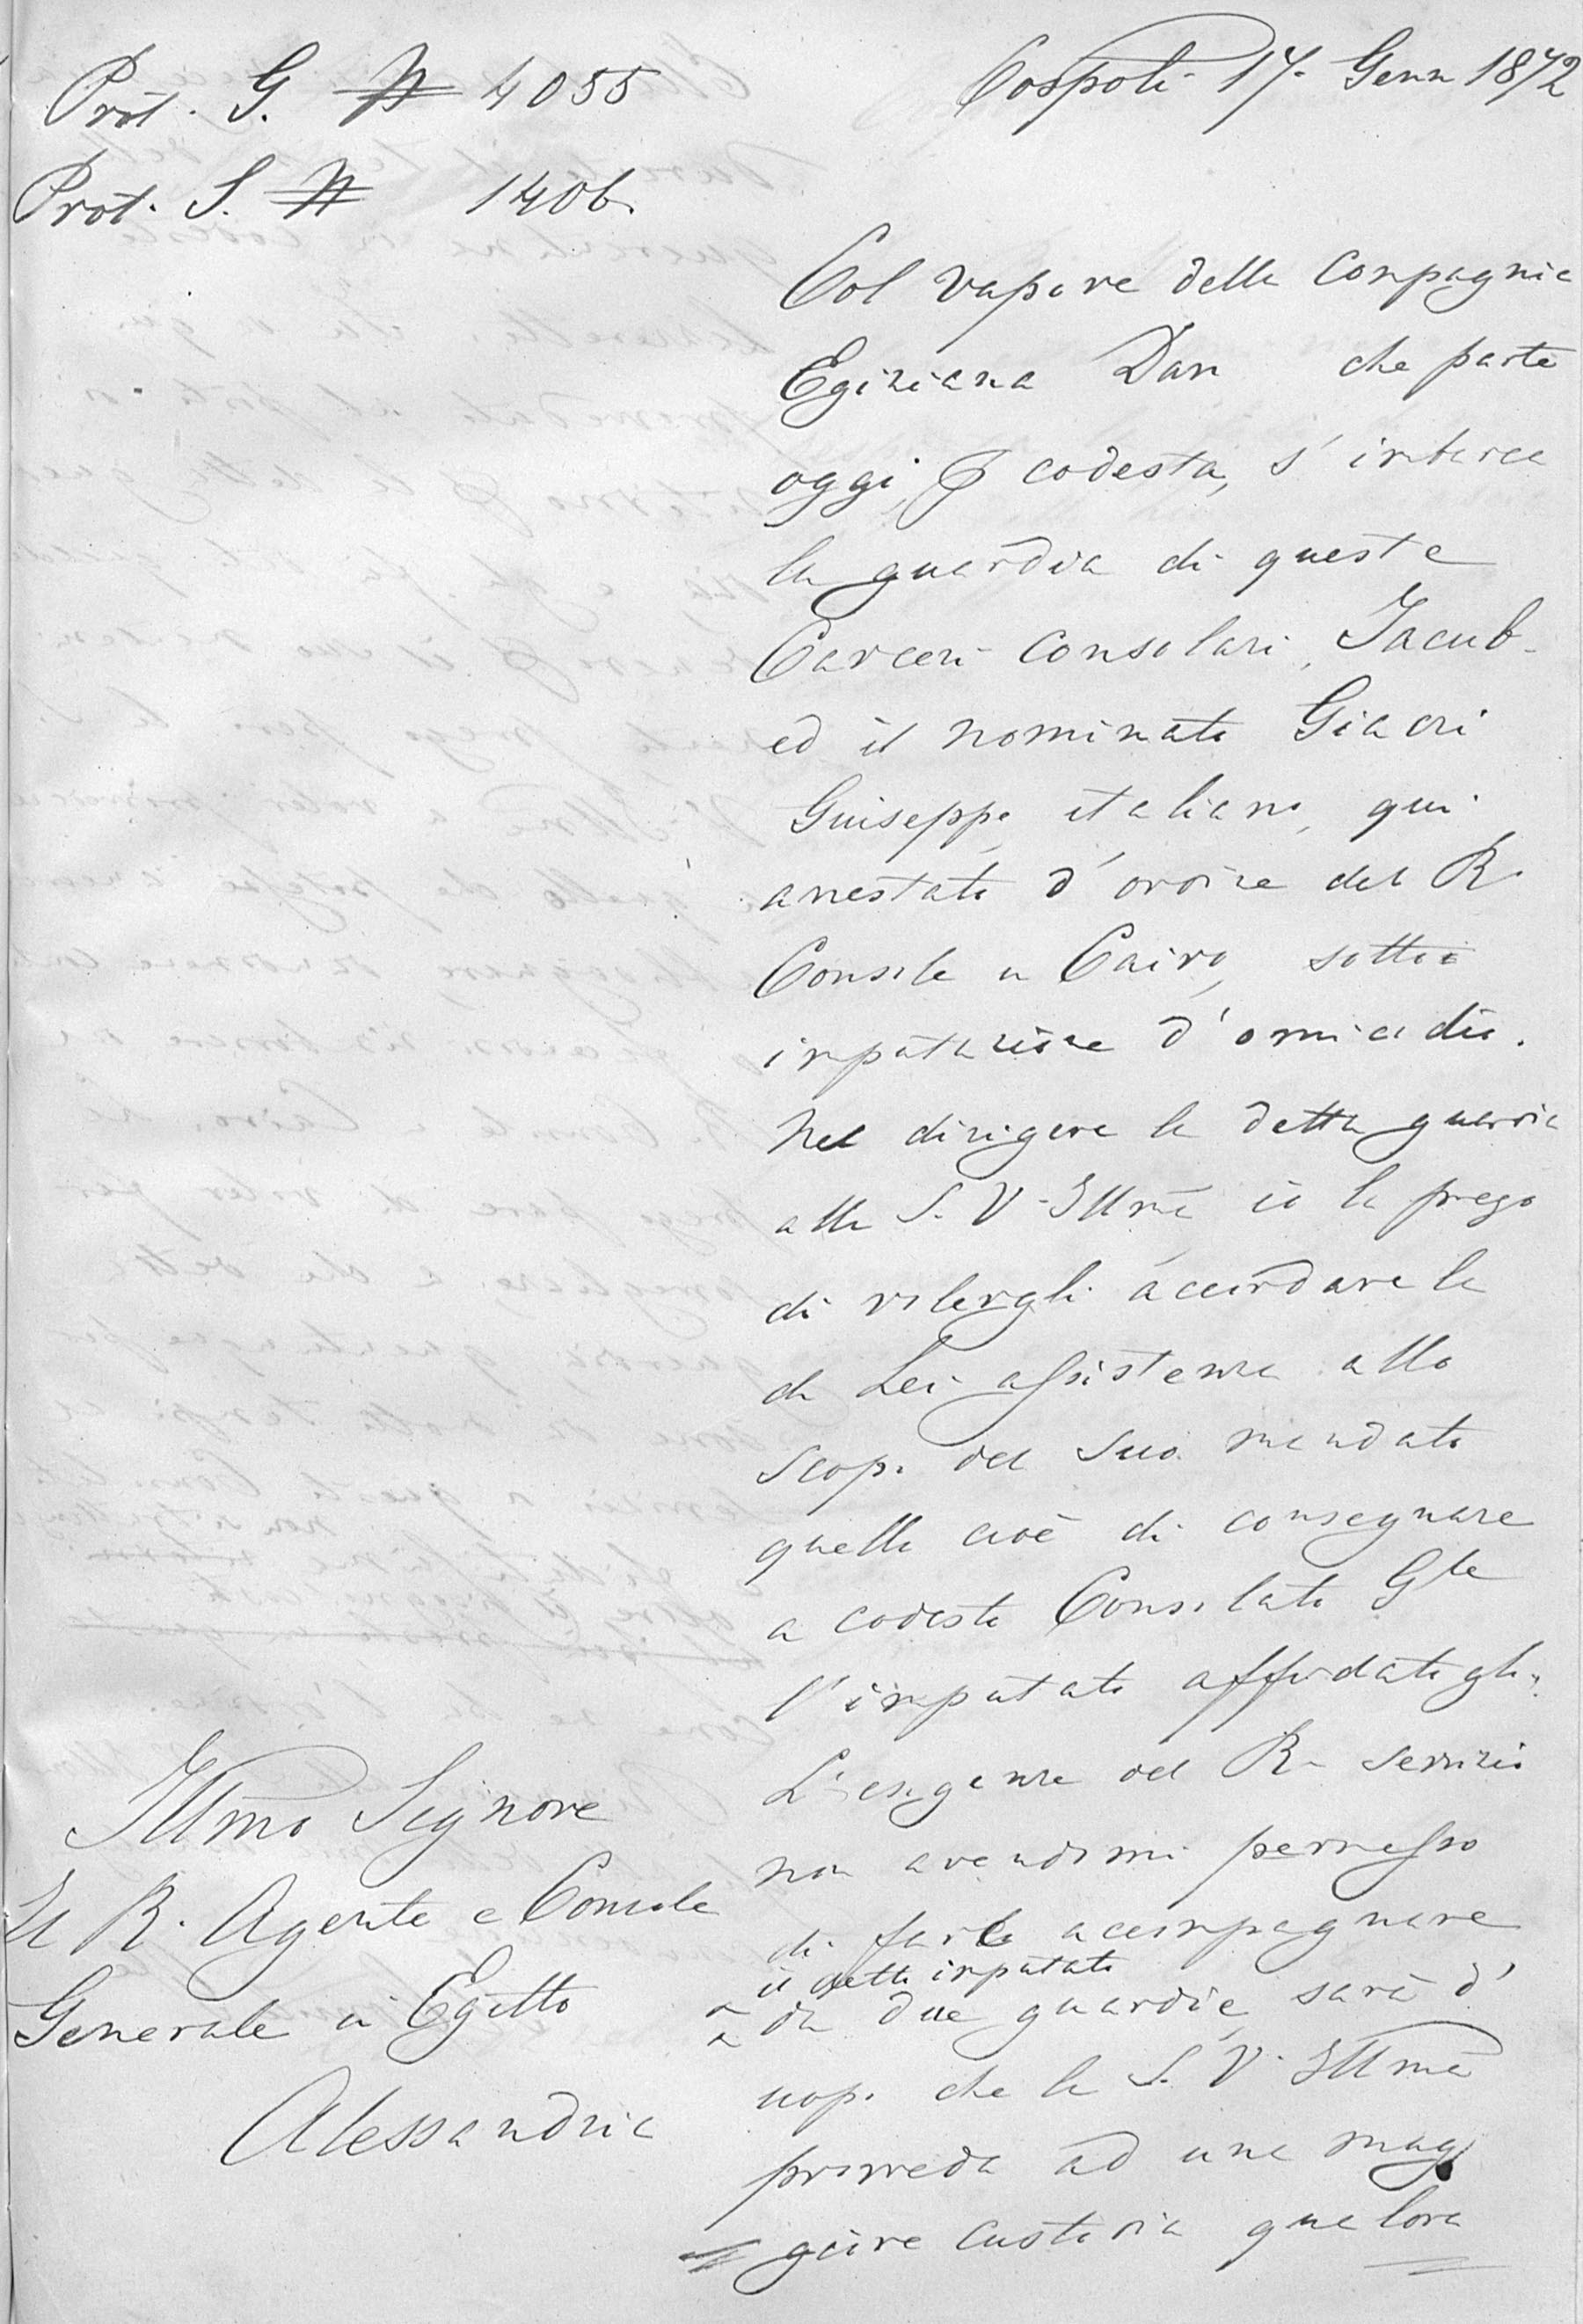 Prot. G. N 4055
Prot. S. N 1406.
Cospoli 17. Genn 1872
Col vapore della Compagnia
Egiziana Dan che parte
oggi, p codesta, s'imbarca
la guardia di queste
Carceri Consolari, Jacub
ed il nominato Giacri
Guiseppe, italiano, qui
arrestato d'ordine del R.
Console a Cairo, sotto
imputazione d'omicidio.
Nel dirigere la detta guardia
alla S. V. Illma io la prego
di volergli accordare la
di Lei assistenza allo
scopo del suo mandato
quello cioè di consegnare
a codesto Consolato Gle
l'imputato affidatogli.
L'esigenze del R. Servizio
non avendomi permesso
di farlo accompagnare
il detto imputato
da due guardie, sarà d'
uopo che la S. V. Illma
provveda ad una mag
giore custodia qualora
Illmo Signore
Il R. Agente e Console
Generale in Egitto
Alessandria